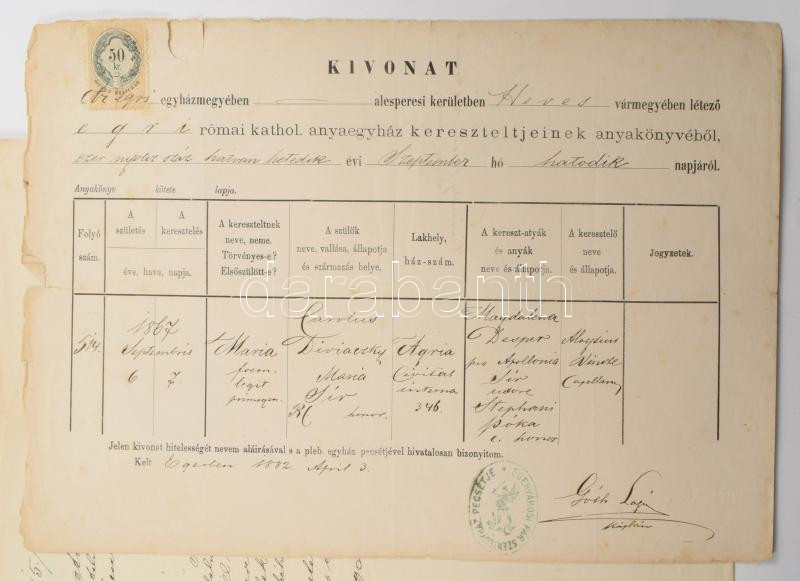 50
kr.
KIVONAT
Az egri egyházmegyében — alesperesi kerületben Heves vármegyében létező
egri római kathol. anyaegyház kereszteltjeinek anyakönyvéből,
ezer nyolcz száz hatvan hetedik évi Szeptember hó hatodik napjáról.
Anyakönyv kötete lapja.
Folyó
szám.
A
születés
A
keresztelés
éve, hava, napja.
A kereszteltnek
neve, neme.
Törvényes-e?
Elsőszülött-e?
A szülők
neve, vallása, állapotja
és származás helye.
Lakhely,
ház-szám.
A kereszt-atyák
és anyák
neve és állapotja.
A keresztelő
neve
és állapotja.
Jegyzetek.
514.
1867
Septembris
6 7.
Maria
foem.
legit
primogen.
Carolus
Diviaczky
Maria
Sir
RC honor.
Agria
Civitat
interna
346.
Magdalena
Desper
pro Apollonia
Sir
Stephani
Póka
c. honor
Aloysius
Capellanus
darabanth
Jelen kivonat hitelességét nevem aláirásával s a pleb. egyház pecsétjével hivatalosan bizonyitom.
Kelt Egerben 1882 April 3.
EGERVÁROSI PLÉB. SZENTEGYHÁZ PECSÉTJE
káplán